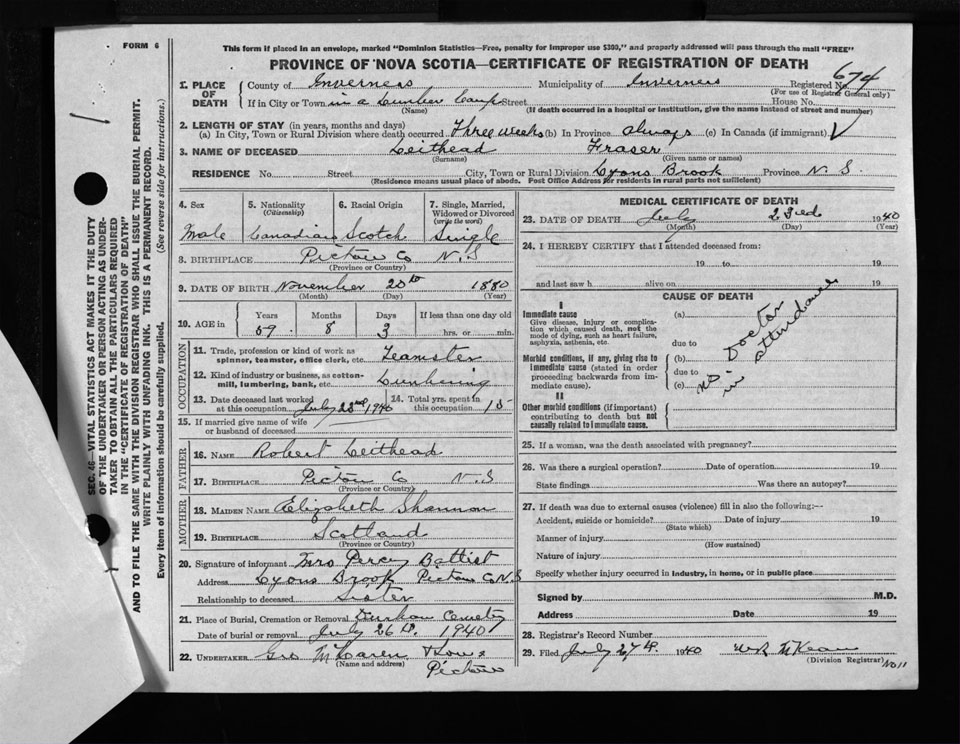 FORM 6
This form if placed in an envelope, marked "Dominion Statistics—Free, penalty for improper use $300," and properly addressed will pass through the mail "FREE"
PROVINCE OF NOVA SCOTIA—CERTIFICATE OF REGISTRATION OF DEATH
SEC. 46—VITAL STATISTICS ACT MAKES IT THE DUTY
OF THE UNDERTAKER OR PERSON ACTING AS UNDER-
TAKER TO OBTAIN ALL THE PARTICULARS REQUIRED
IN THE "CERTIFICATE OF REGISTRATION OF DEATH"
AND TO FILE THE SAME WITH THE DIVISION REGISTRAR WHO SHALL ISSUE THE BURIAL PERMIT.
WRITE PLAINLY WITH UNFADING INK. THIS IS A PERMANENT RECORD.
Every item of information should be carefully supplied. (See reverse side for instructions.)
1. PLACE OF DEATH County of Inverness Municipality of Inverness Registered No. 674
(For use of Registrar General only)
If in City or Town in a Lumber Camp Street House No.
(Name) (If death occurred in a hospital or institution, give the name instead of street and number)
2. LENGTH OF STAY (in years, months and days)
(a) In City, Town or Rural Division where death occurred Three weeks (b) In Province always (c) In Canada (if immigrant)
3. NAME OF DECEASED Leithead Fraser
(Surname) (Given name or names)
RESIDENCE No. Street City, Town or Rural Division Lyons Brook Province N. S.
(Residence means usual place of abode. Post Office Address for residents in rural parts not sufficient)
4. Sex 5. Nationality (Citizenship) 6. Racial Origin 7. Single, Married, Widowed or Divorced (write the word)
Male Canadian Scotch Single
8. BIRTHPLACE Pictou Co N.S
(Province or Country)
9. DATE OF BIRTH November 20th 1880
(Month) (Day) (Year)
10. AGE in Years Months Days If less than one day old
59 8 3 hrs. or min.
OCCUPATION
11. Trade, profession or kind of work as spinner, teamster, office clerk, etc. Teamster
12. Kind of industry or business, as cotton-mill, lumbering, bank, etc. Lumbering
13. Date deceased last worked at this occupation July 23rd 1940 14. Total yrs. spent in this occupation 15
15. If married give name of wife or husband of deceased
FATHER
16. NAME Robert Leithead
17. BIRTHPLACE Pictou Co N.S
(Province or Country)
MOTHER
18. MAIDEN NAME Elizabeth Shannon
19. BIRTHPLACE Scotland
(Province or Country)
20. Signature of informant Mrs Percy Battist
Address Lyons Brook Pictou Co N.S
Relationship to deceased Sister
21. Place of Burial, Cremation or Removal Durham Cemetry
Date of burial or removal July 26th 1940
22. UNDERTAKER Geo McLaren
(Name and address) Pictou
MEDICAL CERTIFICATE OF DEATH
23. DATE OF DEATH July 23rd 1940
(Month) (Day) (Year)
24. I HEREBY CERTIFY that I attended deceased from:
19 to 19
and last saw h alive on 19
CAUSE OF DEATH
I
Immediate cause
Give disease, injury or complication which caused death, not the mode of dying, such as heart failure, asphyxia, asthenia, etc.
(a)
due to
Morbid conditions, if any, giving rise to immediate cause (stated in order proceeding backwards from immediate cause).
(b)
due to
(c)
no Doctor in attendance
II
Other morbid conditions (if important) contributing to death but not causally related to immediate cause.
25. If a woman, was the death associated with pregnancy?
26. Was there a surgical operation? Date of operation 19
State findings Was there an autopsy?
27. If death was due to external causes (violence) fill in also the following:—
Accident, suicide or homicide? Date of injury 19
(State which)
Manner of injury
(How sustained)
Nature of injury
Specify whether injury occurred in industry, in home, or in public place
Signed by M.D.
Address Date 19
28. Registrar's Record Number
29. Filed July 27th 1940 W R McKean
(Division Registrar) No 11